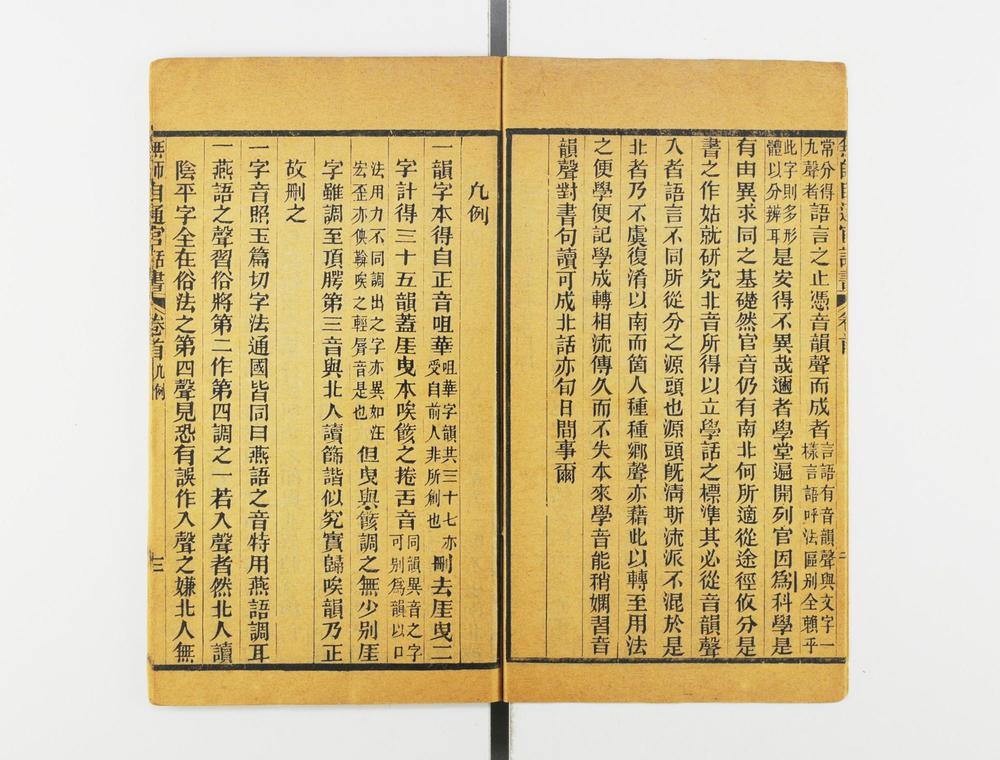 常分得
九聲者
語言之止憑音韻聲而成者
言語有音韻聲與文字一
樣言語呼法區別全賴乎
此字則多形
體以分辨耳
是安得不異哉邇者學堂遍開列官因為科學是
有由異求同之基礎然官音仍有南北何所適從途徑攸分是
書之作姑就研究北音所得以立學話之標準其必從音韻聲
入者語言不同所從分之源頭也源頭旣淸斯流派不混於是
北者乃不虞復淆以南而箇人種種鄉聲亦藉此以轉至用法
之便學便記學成轉相流傳久而不失本來學音能稍嫻習音
韻聲對書句讀可成北話亦旬日間事爾
無師自通官話書
卷首
凡例
一韻字本得自正音咀華
咀華字韻共三十七
受自前人非所創也
亦刪去厓曳二
字計得三十五韻蓋厓曳本唉餩之捲舌音
同韻異音之字
可別為韻以口
法用力不同調出之字亦異如汪
宏歪亦倎鞥唉之輕脣音是也
但曳與餩調之無少別厓
字雖調至頂腭第三音與北人讀篩諧似究實歸唉韻乃正
故刪之
一字音照玉篇切字法通國皆同曰燕語之音特用燕語調耳
一燕語之聲習俗將第二作第四調之一若入聲者然北人讀
陰平字全在俗法之第四聲見恐有誤作入聲之嫌北人無
無師自通官話書
卷首
凡例
三